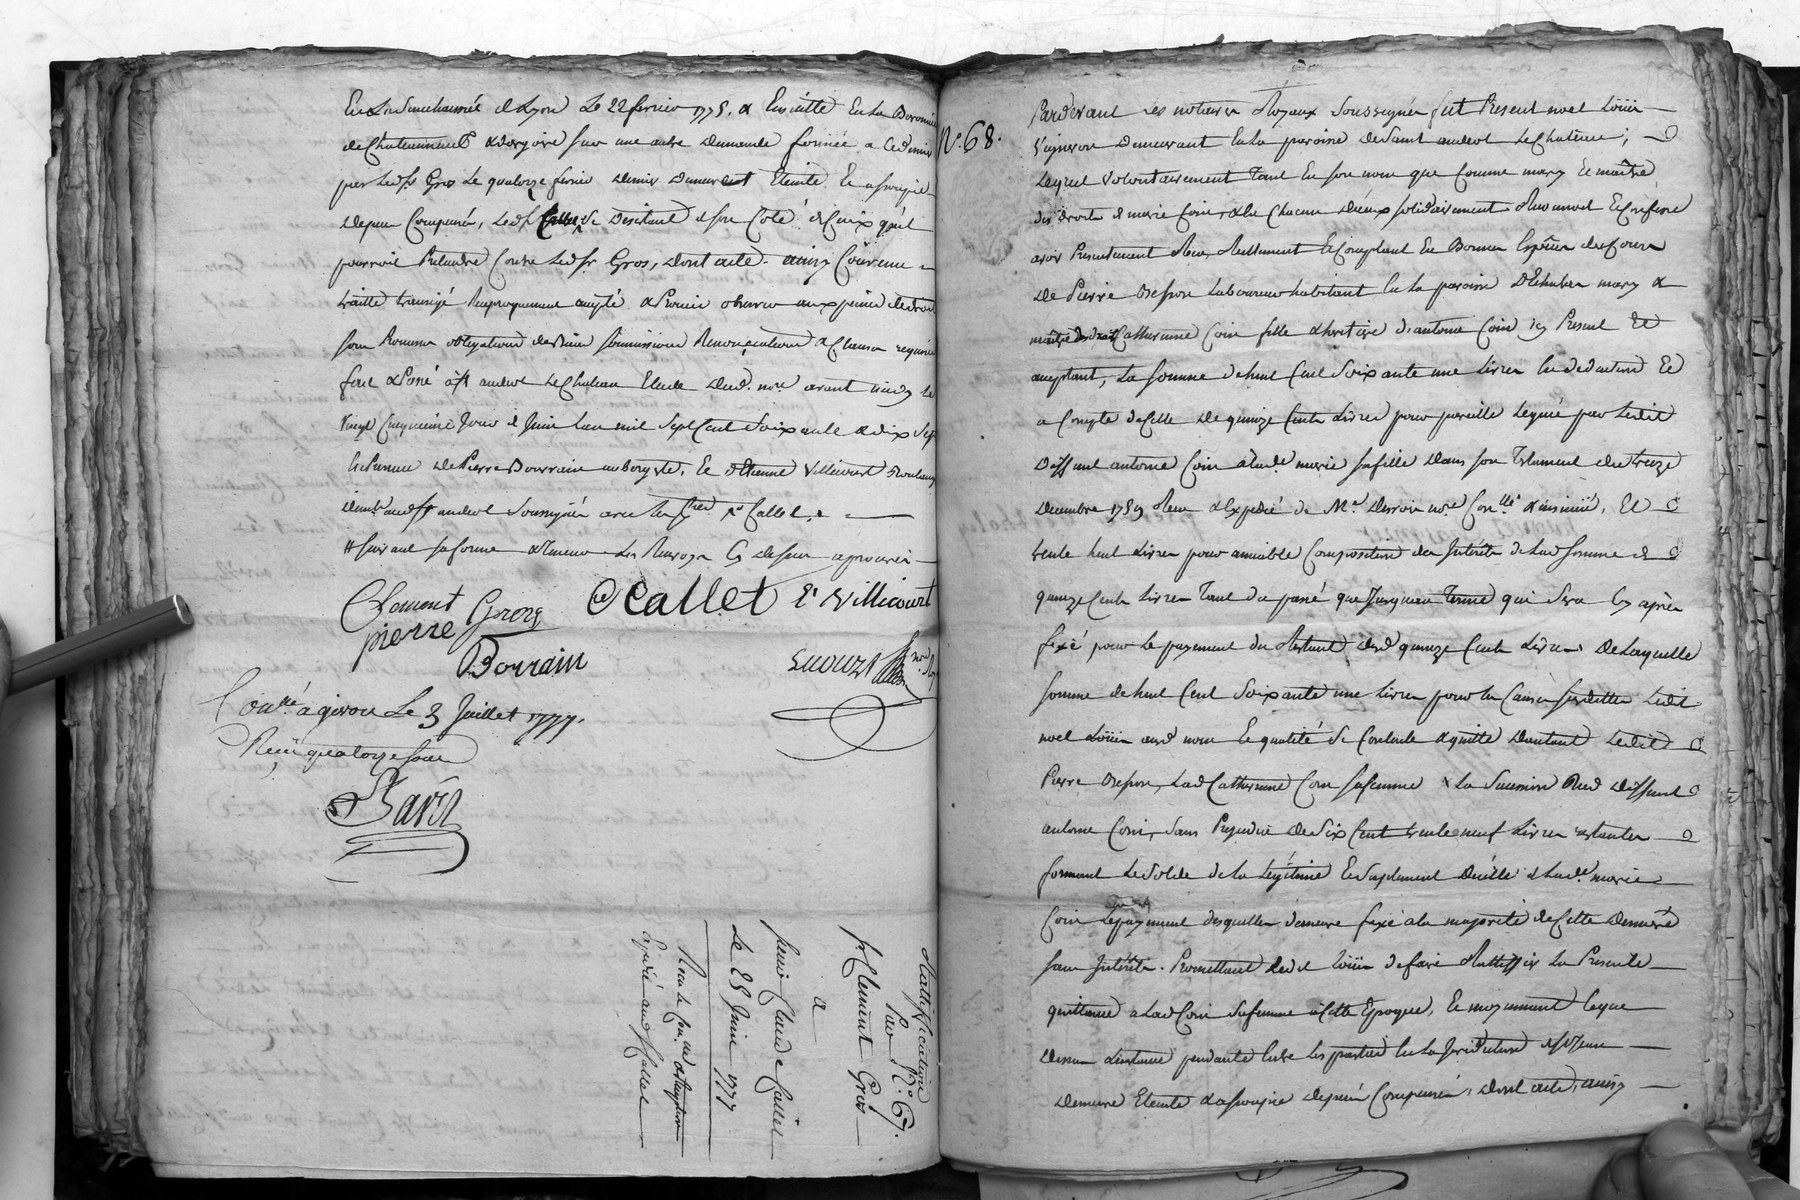 En la Senechaussée de Lyon Le 22 fevrier 1775. & Ensuitte En la Baronnie
de Chateauneuf & dargoire sur une autre demande formée a Ce dernier
par Led. Sr Gros Le quatorze fevrier dernier demeurent Eteinte Et assoupie
depens Compensés, Led. Sr Callet se desistant de son Coté de Ceux qu'il
pourroit Pretendre Contre Led. Sr Gros, dont acte. ainsy Convenu
traitté transigé Reciproquement accepté & Promis observer aux peines de droit
sous Promesses obligations de Biens soumissions Renonciations & Clauses requises
fait & Passé à St andeol Le Chateau Etude dud. nore avant midy le
Vingt Cinquieme Jour de Juin L'an mil Sept Cent Soixante & dix Sept
En Presence de Pierre Bourrain aubergiste, Et d'Etienne Villicourt
demts aud. St andeol Soussignés avec les Parties & Sr Callet.
# suivant sa forme & teneur Les Renvoys Cy dessus approuvés
Clement Gros Callet Er Villicourt
pierre
Bourrain
Contrôlé à givors Le 3 Juillet 1777.
Reçu quatorze sous
Ratification No. 67.
Par
Sr Clement Gros
a
Sieur Claude Callet
Le 25 Juin 1777
Expedié aud. Sr Callet
No. 68.
Pardevant Les notaires Royaux Soussignés fut Present noel
Vigneron Demeurant En la paroisse de Saint andeol Le Chateau ;
Lequel volontairement Tant En son nom que Comme mary Et maitre
des droits de marie Coin, & La Chacun d'eux solidairement Reconnoit Et Confesse
avoir Presentement Reçu Reellement & Comptant En Bonnes Especes de Cours
De Pierre Besson Laboureur habitant En la paroisse D'Echalas mary &
maitre des droits Catherinne Coin fille & heritiere d'antoine Coin icy Present Et
acceptant, La Somme de huit Cent Soixante une Livres En deduction Et
a Compte de Celle De quinze Cents Livres pour pareille Leguée par Ledit
Deffunt antoine Coin à Lade marie sa fille Dans son Testament du treize
Decembre 1759 Reçu & Expedié de Me. nore Conlle & insinüé, Et
trente huit Livres pour amiable Composition des Interets de Lad. Somme de
quinze Cents Livres Tant du passé que Jusqu'au Terme qui sera Cy après
fixé pour Le payement du Restant desd. quinze Cents Livres De Laquelle
Somme de huit Cent Soixante une Livres pour les Causes susdittes Ledit
noel aud. nom Et qualité Se Contente & quitte D'autant Ledit
Pierre Besson, Lad. Catherinne Coin sa femme & La Succession dud. Deffunt
antoine Coin, Sans Prejudice De Six Cent trente neuf Livres restantes
formant Le Solde de la Légitime Et Suplement d'icelle & Lade. marie
Coin Le payement desquelles demeure fixé à la majorité de Cette Derniere
sans Interets. Promettant Led. de faire Ratiffier La Presente
quittance a Lad. Coin Sa femme à Cette Epoque, Et moyennant Ce que
dessus L'instance pendante Entre Les parties En La Jurisdiction de St Jean
Demeure Eteinte & assoupie depens Compensés, Dont acte, ainsy